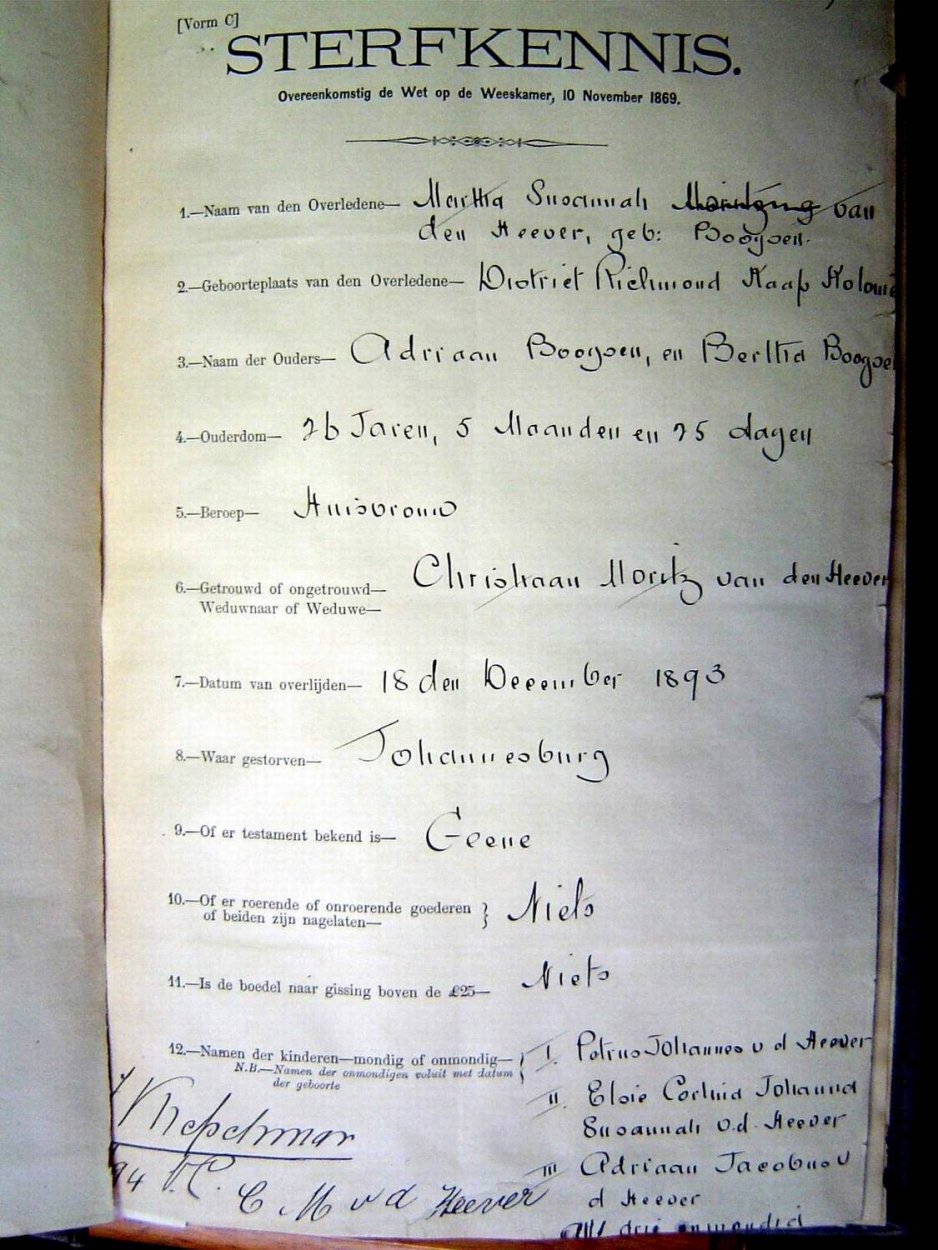 [Vorm C]
STERFKENNIS.
Overeenkomstig de Wet op de Weeskamer, 10 November 1869.
1.—Naam van den Overledene— Martha Susannah van
den Heever, geb: Booysen.
2.—Geboorteplaats van den Overledene— District Richmond Kaap Kolonie
3.—Naam der Ouders— Adriaan Booysen, en Bertha Booysen
4.—Ouderdom— 26 Jaren, 5 Maanden en 25 dagen
5.—Beroep— Huisvrouw
6.—Getrouwd of ongetrouwd— Christiaan Moritz van den Heever
Weduwnaar of Weduwe—
7.—Datum van overlijden— 18 den December 1893
8.—Waar gestorven— Johannesburg
9.—Of er testament bekend is— Geene
10.—Of er roerende of onroerende goederen } Niets
of beiden zijn nagelaten—
11.—Is de boedel naar gissing boven de £25— Niets
12.—Namen der kinderen—mondig of onmondig— { I. Petrus Johannes v d Heever
N.B.—Namen der onmondigen voluit met datum
der geboorte
II. Elsie Johanna
Susannah v.d. Heever
III Adriaan Jacobus v
d Heever
Alle drie onmondig
94 V.C.
C M v d Heever